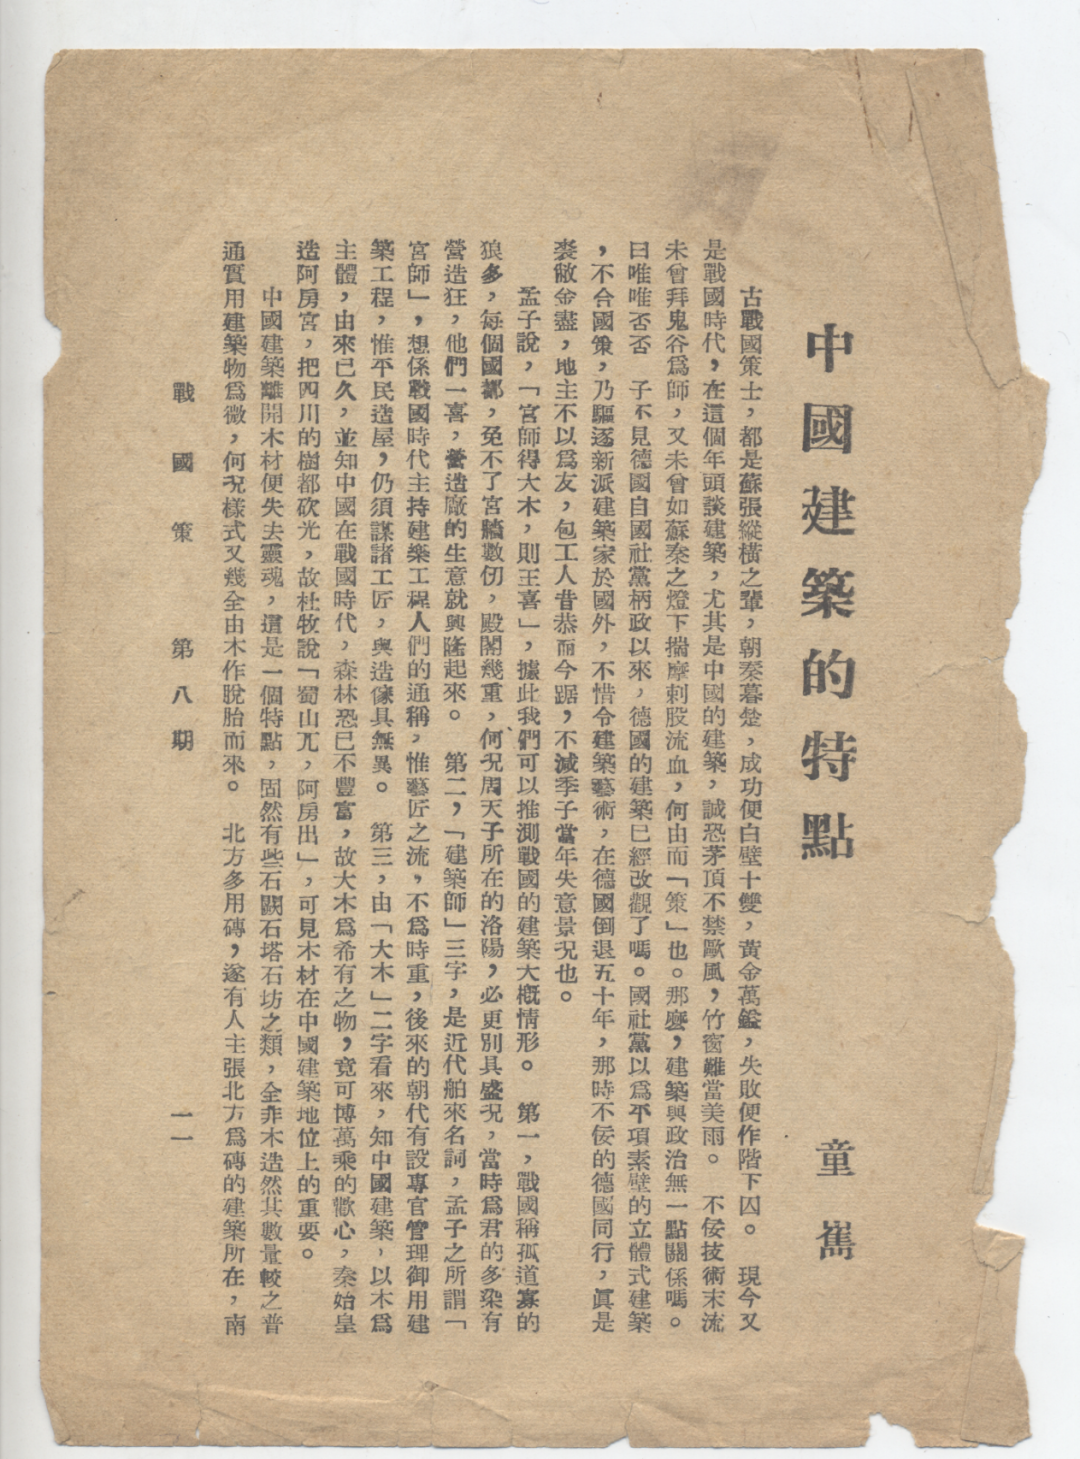 中國建築的特點
童寯
古戰國策士，都是蘇張縱橫之輩，朝秦暮楚，成功便白壁十雙，黃金萬鎰，失敗便作階下囚。　現今又
是戰國時代，在這個年頭談建築，尤其是中國的建築，誠恐茅頂不禁歐風，竹窗難當美雨。　不佞技術末流
未曾拜鬼谷爲師，又未曾如蘇秦之燈下揣摩刺股流血，何由而「策」也。那麽，建築與政治無一點關係嗎。
曰唯唯否否　子不見德國自國社黨柄政以來，德國的建築已經改觀了嗎。國社黨以爲平項素壁的立體式建築
，不合國策，乃驅逐新派建築家於國外，不惜令建築藝術，在德國倒退五十年，那時不佞的德國同行，眞是
裘敝金盡，地主不以爲友，包工人昔恭而今踞，不減季子當年失意景况也。
孟子說，「宮師得大木，則王喜」，據此我們可以推測戰國的建築大槪情形。　第一，戰國稱孤道寡的
狼多，每個國都，免不了宮牆數仞，殿閣幾重，何况周天子所在的洛陽，必更別具盛况，當時爲君的多染有
營造狂，他們一喜，營造廠的生意就興隆起來。　第二，「建築師」三字，是近代舶來名詞，孟子之所謂「
宮師」，想係戰國時代主持建樂工程人們的通稱，惟藝匠之流，不爲時重，後來的朝代有設專官管理御用建
築工程，惟平民造屋，仍須謀諸工匠，與造傢具無異。　第三，由「大木」二字看來，知中國建築，以木爲
主體，由來已久，並知中國在戰國時代，森林恐已不豐富，故大木爲希有之物，竟可博萬乘的歡心，秦始皇
造阿房宮，把四川的樹都砍光，故杜牧說「蜀山兀，阿房出」，可見木材在中國建築地位上的重要。
中國建築離開木材便失去靈魂，這是一個特點，固然有些石闕石塔石坊之類，全非木造然其數量較之普
通實用建築物爲微，何况樣式又幾全由木作脫胎而來。　北方多用磚，遂有人主張北方爲磚的建築所在，南
戰國策　第八期　一一